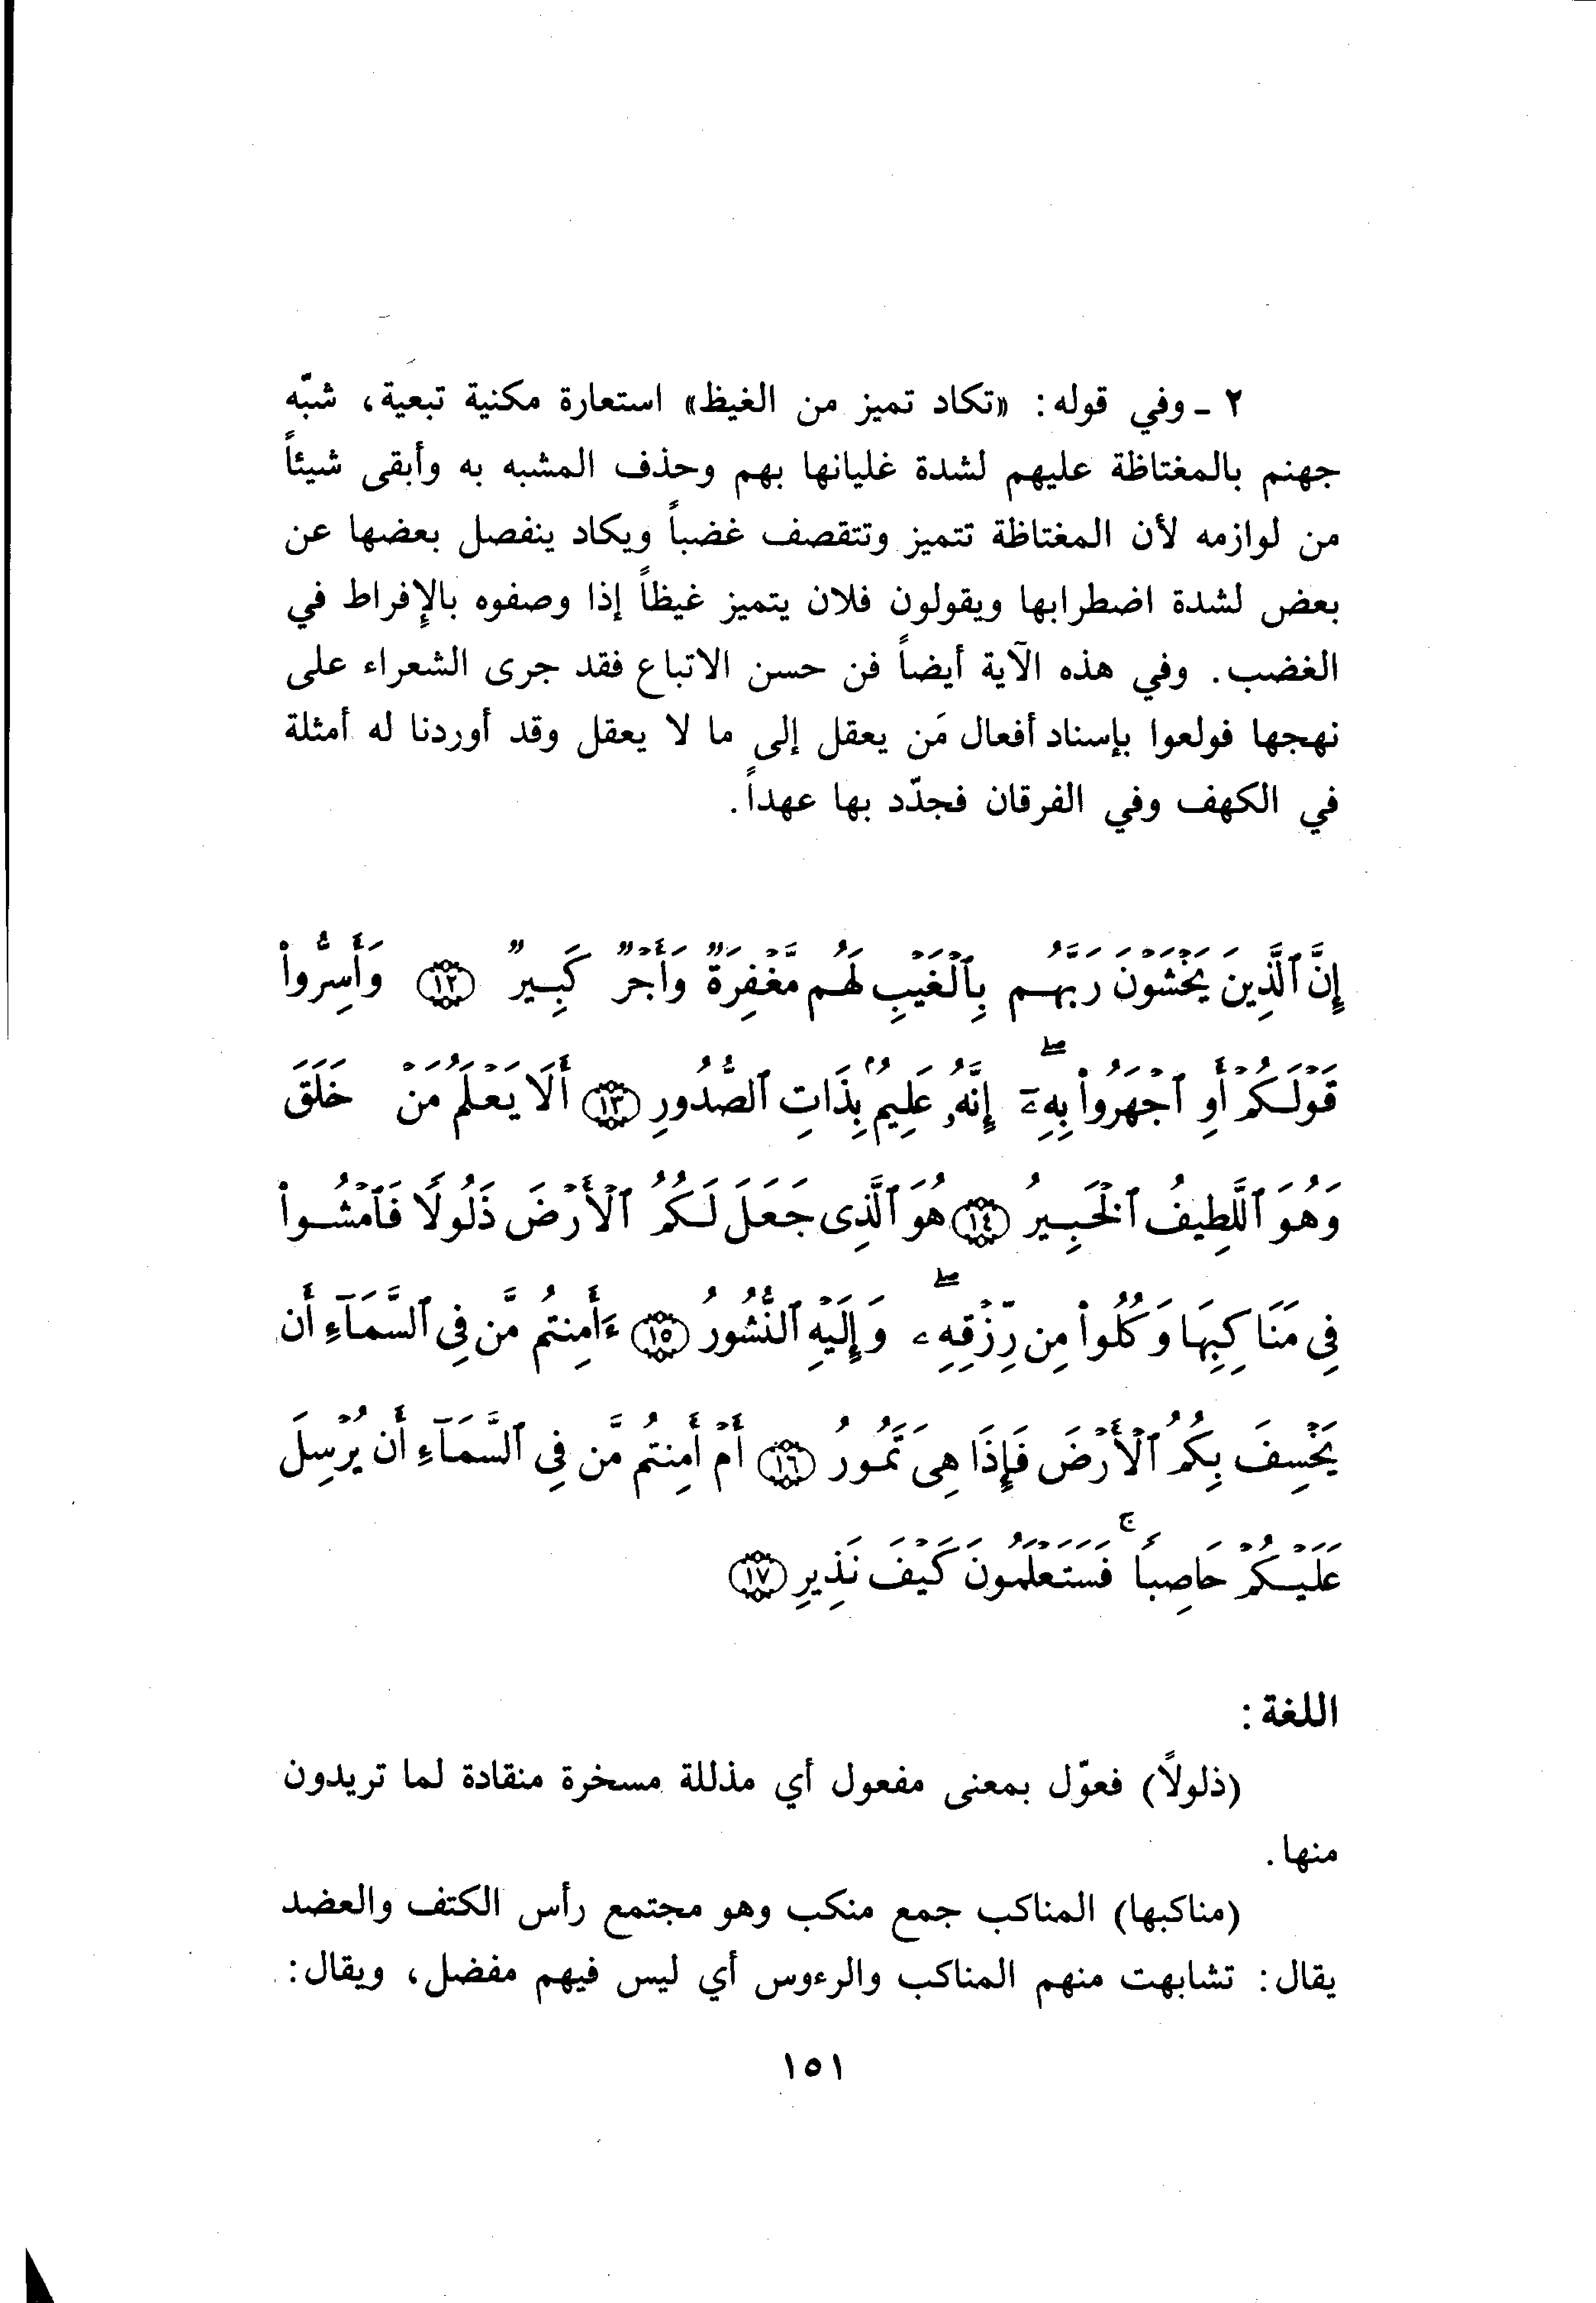 ٢ ـ وفي قوله: «تكاد تميز من الغيظ» استعارة مكنية تبعية، شبّه
جهنم بالمغتاظة عليهم لشدة غليانها بهم وحذف المشبه به وأبقى شيئاً
من لوازمه لأن المغتاظة تتميز وتتقصف غضباً ويكاد ينفصل بعضها عن
بعض لشدة اضطرابها ويقولون فلان يتميز غيظاً إذا وصفوه بالإفراط في
الغضب. وفي هذه الآية أيضاً فن حسن الاتباع فقد جرى الشعراء على
نهجها فولعوا بإسناد أفعال مَن يعقل إلى ما لا يعقل وقد أوردنا له أمثلة
في الكهف وفي الفرقان فجدّد بها عهداً.
إِنَّ ٱلَّذِينَ يَخْشَوْنَ رَبَّهُم بِٱلْغَيْبِ لَهُم مَّغْفِرَةٌ وَأَجْرٌ كَبِيرٌ ١٢ وَأَسِرُّوا۟
قَوْلَكُمْ أَوِ ٱجْهَرُوا۟ بِهِۦٓ ۖ إِنَّهُۥ عَلِيمٌۢ بِذَاتِ ٱلصُّدُورِ ١٣ أَلَا يَعْلَمُ مَنْ خَلَقَ
وَهُوَ ٱللَّطِيفُ ٱلْخَبِيرُ ١٤ هُوَ ٱلَّذِى جَعَلَ لَكُمُ ٱلْأَرْضَ ذَلُولًا فَٱمْشُوا۟
فِى مَنَاكِبِهَا وَكُلُوا۟ مِن رِّزْقِهِۦ ۖ وَإِلَيْهِ ٱلنُّشُورُ ١٥ ءَأَمِنتُم مَّن فِى ٱلسَّمَآءِ أَن
يَخْسِفَ بِكُمُ ٱلْأَرْضَ فَإِذَا هِىَ تَمُورُ ١٦ أَمْ أَمِنتُم مَّن فِى ٱلسَّمَآءِ أَن يُرْسِلَ
عَلَيْكُمْ حَاصِبًا ۚ فَسَتَعْلَمُونَ كَيْفَ نَذِيرِ ١٧
اللغة:
(ذلولاً) فعوّل بمعنى مفعول أي مذللة مسخرة منقادة لما تريدون
منها.
(مناكبها) المناكب جمع منكب وهو مجتمع رأس الكتف والعضد
يقال: تشابهت منهم المناكب والرءوس أي ليس فيهم مفضل، ويقال:
١٥١